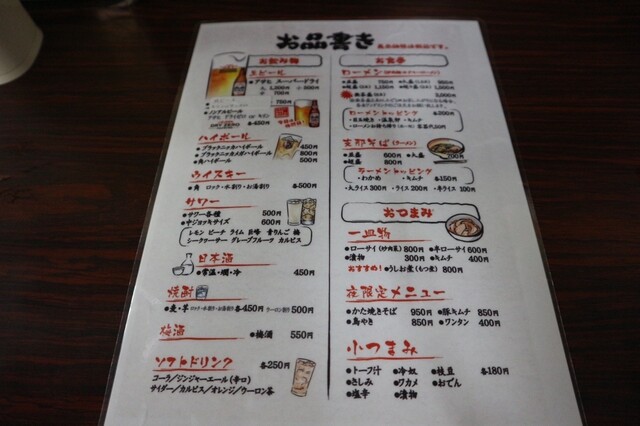 お品書き
お飲み物
生ビール
●アサヒ スーパードライ
大 1,200円
中 700円
●ノンアルビール
各450円
ハイボール
●ブラックニッカハイボール 450円
●ブラックニッカメガハイボール 800円
●角ハイボール 500円
ウイスキー
●角 ロック・水割り・お湯割り 各500円
サワー
●サワー各種 500円
●中ジョッキサイズ 600円
レモン ピーチ ライム 巨峰 青りんご 梅
シークワーサー グレープフルーツ カルピス
日本酒
●常温・燗・冷 450円
焼酎
●麦・芋 ロック・水割・お湯割り 各450円 500円
梅酒
●梅酒 550円
ソフトドリンク 各250円
コーラ/ジンジャーエール(辛口)
サイダー/カルピス/オレンジ/ウーロン茶
お食事
ローメン
ローメントッピング 各200円
●目玉焼き ・温泉卵 ・キムチ
支那そば(ラーメン)
●並盛 600円 ●大盛 700円
●超盛 800円
ラーメントッピング
・わかめ ・キムチ 各150円
・大ライス 300円 ・ライス 200円 ・半ライス 100円
おつまみ
一皿物
●ローサイ(炒肉菜) 800円 ●半ローサイ 600円
●漬物 300円 ●キムチ 400円
おすすめ! ●うしお煮(もつ煮) 800円
夜限定メニュー
●かた焼きそば 950円 ●豚キムチ 850円
●鳥やき 850円 ●ワンタン 400円
小つまみ
●トーフ汁 ●冷奴 ●枝豆 各180円
●さしみ ●ワカメ ●おでん
●塩辛 ●漬物